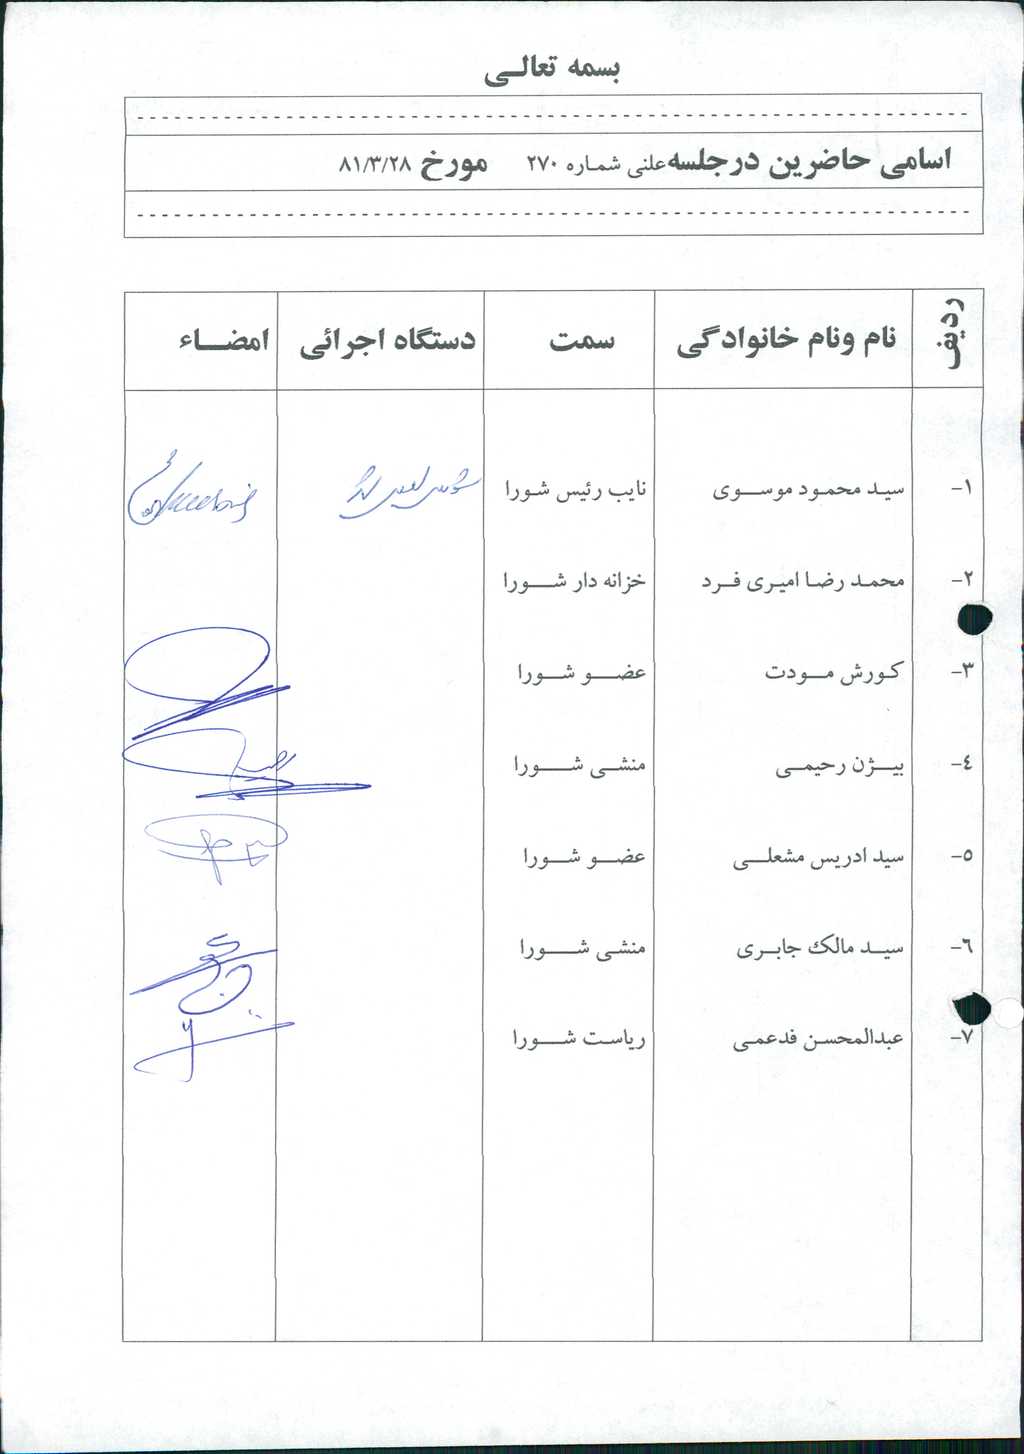 بسمه تعالـی
اسامی حاضرین درجلسه علنی شماره ۲۷۰ مورخ ۸۱/۳/۲۸
ردیف نام ونام خانوادگی سمت دستگاه اجرائی امضـــاء
۱- سیـد محمـود موســوی نایب رئیس شـورا
۲- محمـد رضـا امیـری فــرد خزانه دار شــورا
۳- کـورش مــودت عضــو شـورا
٤- بیــژن رحیمـی منشـی شـــورا
٥- سید ادریس مشعلـی عضــو شـورا
۶- سیــد مالک جابـری منشـی شـــورا
۷- عبدالمحسـن فدعمـی ریاسـت شــورا